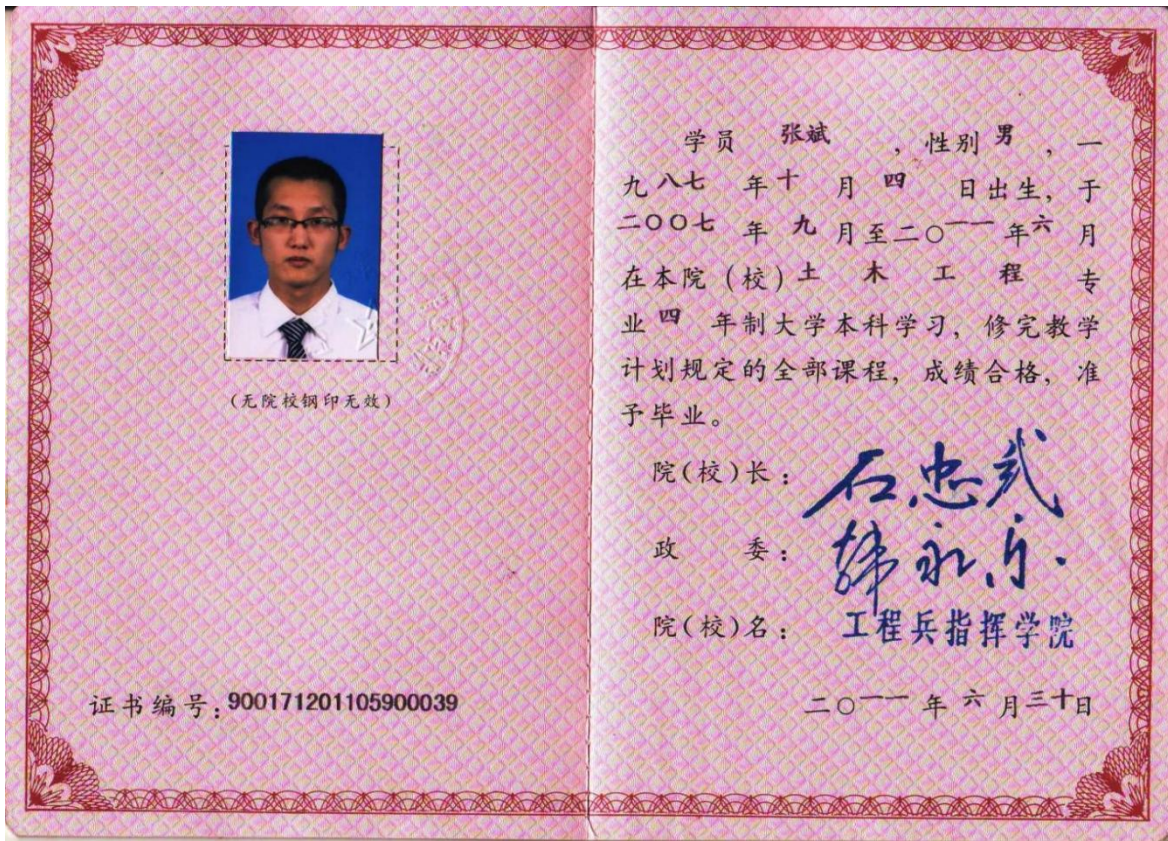 (无院校钢印无效)
证书编号:900171201105900039
学员 张斌 ,性别 男 ,一
九八七 年十 月 四 日出生,于
二〇〇七 年 九 月至二〇一一 年六 月
在本院(校)土 木 工 程 专
业四 年制大学本科学习,修完教学
计划规定的全部课程,成绩合格,准
予毕业。
院(校)长:石忠武
政 委:
院(校)名:工程兵指挥学院
二〇一一 年 六 月三十日